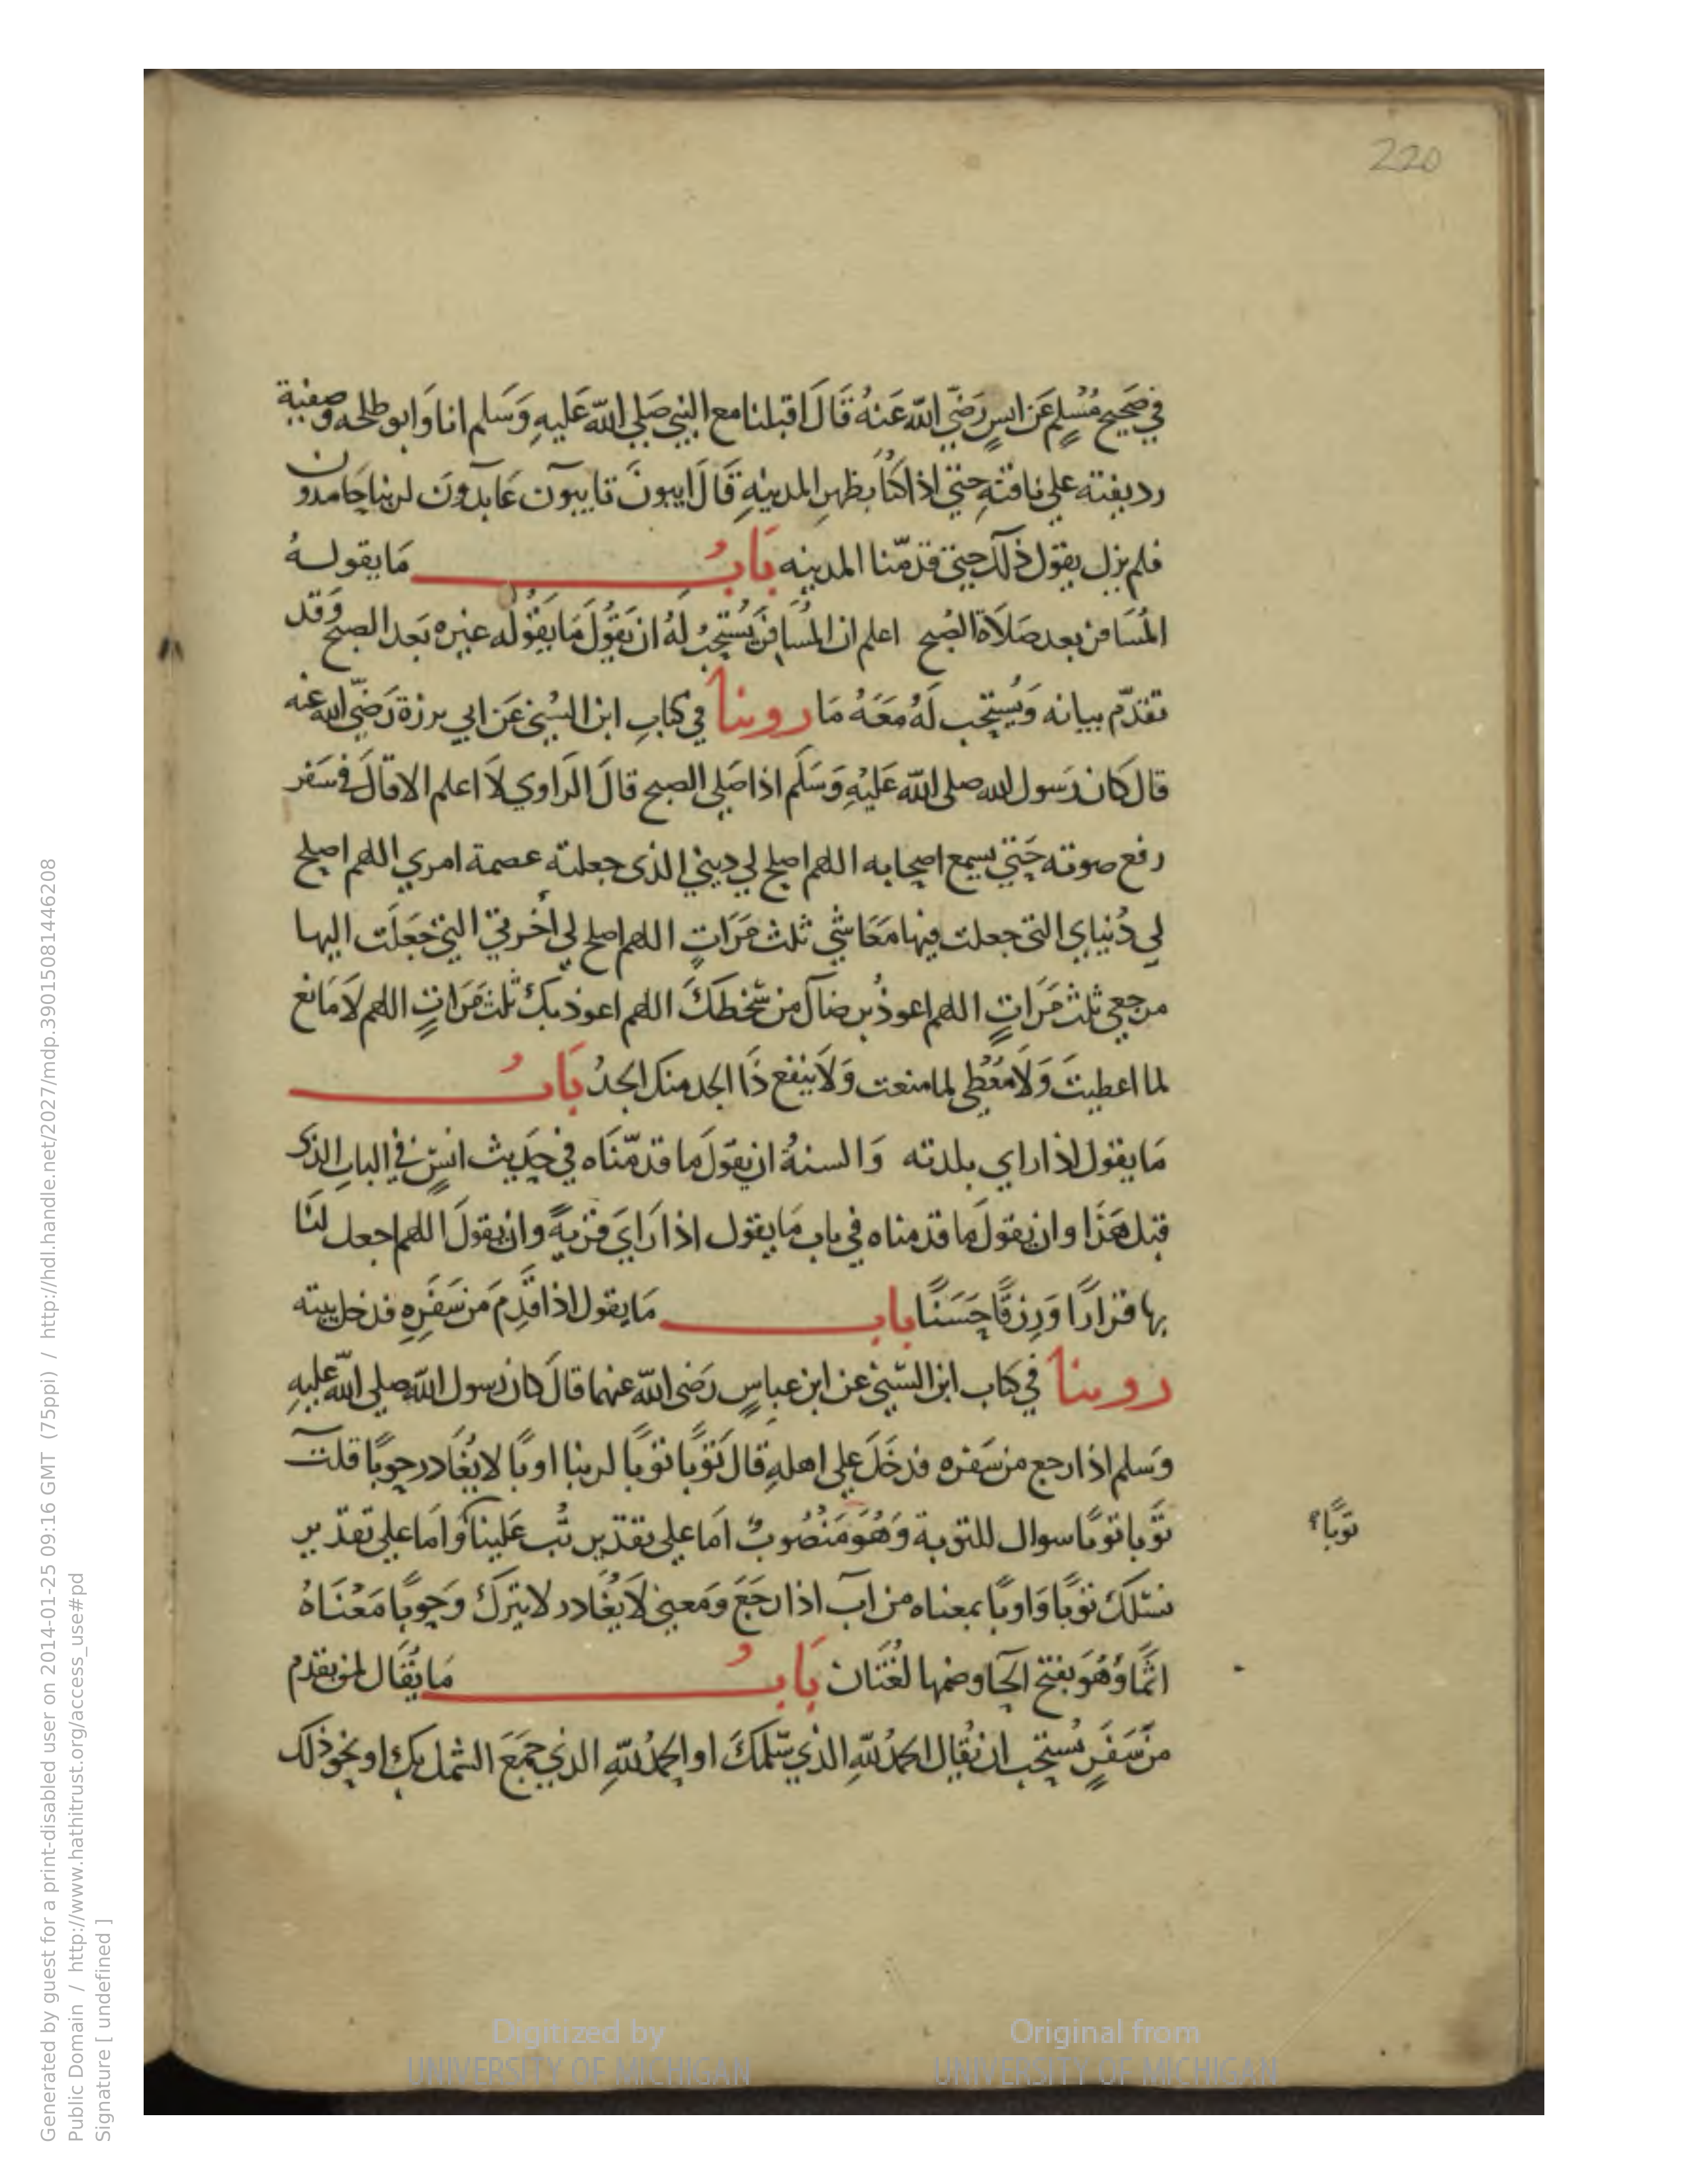 220
في صَحِيح مُسْلِمٍ عَن انسٍ رَضِيَ اللّه عَنهُ قَالَ اقبلنا مع النبي صَلي اللّه عَليهِ وَسَلم انا وَابو طلحه وصفية
رديفته علي ناقتهِ حتي اذا كُنا بظهرِ المدينهِ قَالَ ايبونَ تايبون عَابدونَ لربنا حَامدون
فلم يزل يقول ذلك حتي قدمّنا المدينه بَابُ مَا يقولهُ
المُسَافر بعد صَلاَة الصُبح اعلم ان المُسَافرَ يُستحَبُ لهُ ان يَقُولَ مَا يَقُولُه غيره بَعد الصبح وَقد
تقدّم بيانه وَيُستحِب لَهُ مَعَهُ مَا روينا في كتابِ ابن السُني عَن ابي برزة رَضيَ اللّه عنه
قال كان رَسول الله صلى اللّه عَليْهِ وَسَلَم اذا صَلي الصبح قالَ الراوي لاَ اعلم الا قالَ في سَفر
رفع صوته حَتي يسمع اصحابه اللهم اصلح لي ديني الذى جعلته عصمة امري اللهم اصلح
لي دُنيَاي التى جعلت فيها مَعَاشي ثلث مَرَاتٍ اللهم اصلح لي اُخرتي التي جَعَلت اليها
مرجعي ثلث مَرَاتٍ اللهم اعوذُ برضاك من سَّخطكَ اللهم اعوذ بكَ ثلث مَرَاتٍ اللهم لاَ مَانع
لما اعطيتَ وَلاَ مُعْطِي لما منعت وَلاَ ينفع ذَا الجد منك الجَدُ بَابُ
مَا يقول اذا راي بلدته وَالسنةُ ان يقولَ ما قدمّنَاه في حَدِيث انسٍ في البابِ الذى
قبل هَذَا وان يقولَ ما قدمناه في باب مَا يقول اذا رَايَ قريةً وان يقولَ اللهم اجعل لنَا
بها قرارًا وَرِزقًا حَسَنًا باب مَا يقول اذا قَدِم مَن سَفَرِهِ فدخل بيته
روينا في كتاب ابن السّني عن ابن عباسٍ رَضى اللّه عنهما قالَ كان رسول اللّه صلي اللّه عليهِ
وَسلم اذا رجع من سَفره فدخَلَ علي اهلهِ قالَ تَوْبًا تَوْبًا لربنا اوبًا لا يُغَادر حوبًا قلت
تَوْبا توبًا سوال للتوبة وَهُوَ مَنْصُوبٌ اَما علي تقدير تُب عَلينا وَاَما علي تقدير
نسئلكَ تَوْبًا وَاوبًا بمعناه من آب اذا رجَعَ وَمَعني لاَ يُغَادر لا يترك وَحوبًا مَعْنَاهُ
توبًا؟
اثمًا وَهُوَ بفتح الحَا وضمها لغُتَان بَابُ مَا يُقَال لمن يقدم
من سَفَرٍ يُستحب ان يُقَال الحمدُ للّهِ الذي سَّلمكَ او الحمدُ للّهِ الذي جمَعَ الشمل بكَ او نحو ذلك
Digitized by
UNIVERSITY OF MICHIGAN
Original from
UNIVERSITY OF MICHIGAN
Generated by guest for a print-disabled user on 2014-01-25 09:16 GMT (75ppi) / http://hdl.handle.net/2027/mdp.39015081446208
Public Domain / http://www.hathitrust.org/access_use#pd
Signature [ undefined ]